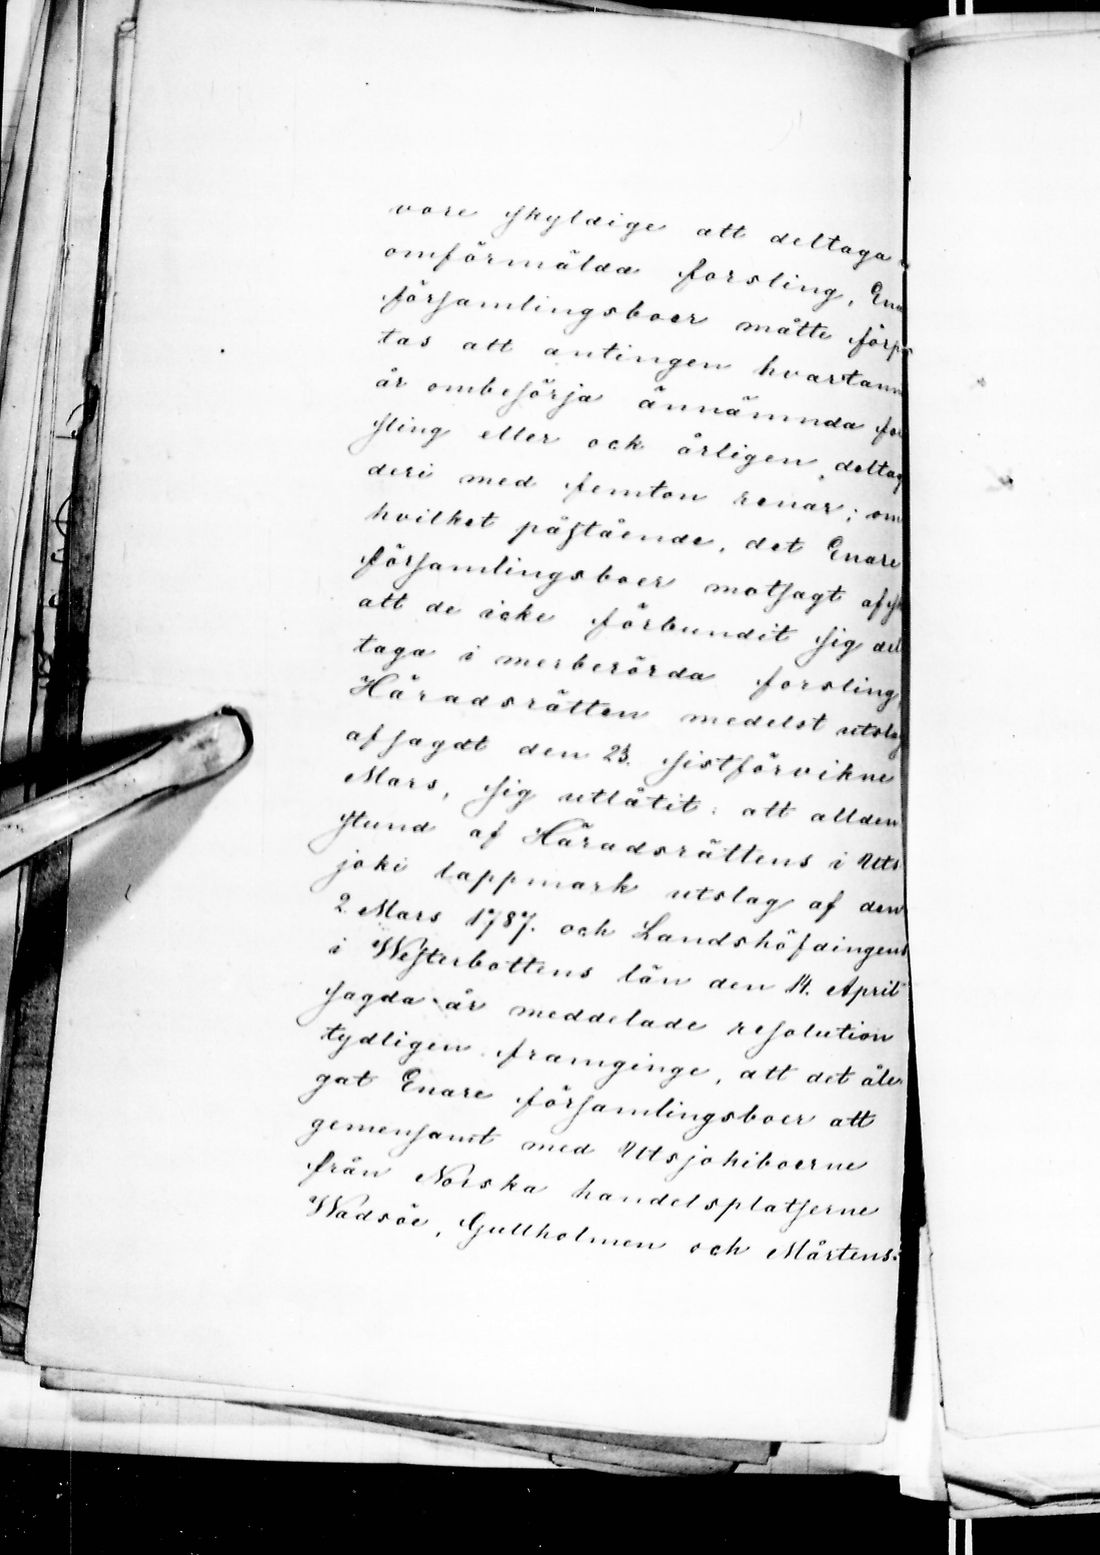 vore skyldige att deltaga
omförmälda forsling, Ena
församlingsboer måtte förp
tas att antingen hvartann
år ombesörja ännämnda for
sling eller ock årligen deltag
deri med femton renar; om
hvilket påstående, det Enare
församlingsboer motsagt afsk
att de icke förbundit sig del
taga i merberörda forsling,
Häradsrätten medelst utslag
afsagdt den 23. sistförvikne
Mars, sig utlåtit: att allden
stund af Häradsrättens i Uts
joki lappmark utslag af den
2 Mars 1787. och Landshöfdingens
i Westerbottens län den 14. April
sagda år meddelade resolution
tydligen framginge, att det åle
gat Enare församlingsboer att
gemensamt med Utsjokiboerne
från Norska handelsplatserne
Wadsöe, Gullholmen och Mårtens: